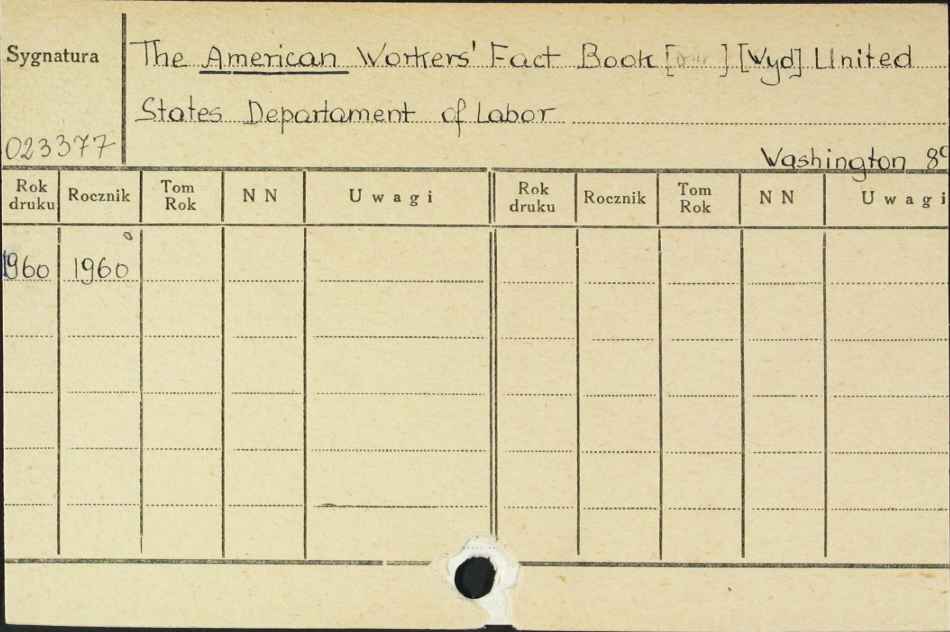 Sygnatura
The American Workers' Fact Book [ ] [Wyd] United
States Departament of Labor
023377
Washington 8°
Rok druku Rocznik Tom Rok N N Uwagi Rok druku Rocznik Tom Rok N N Uwagi
1960 1960